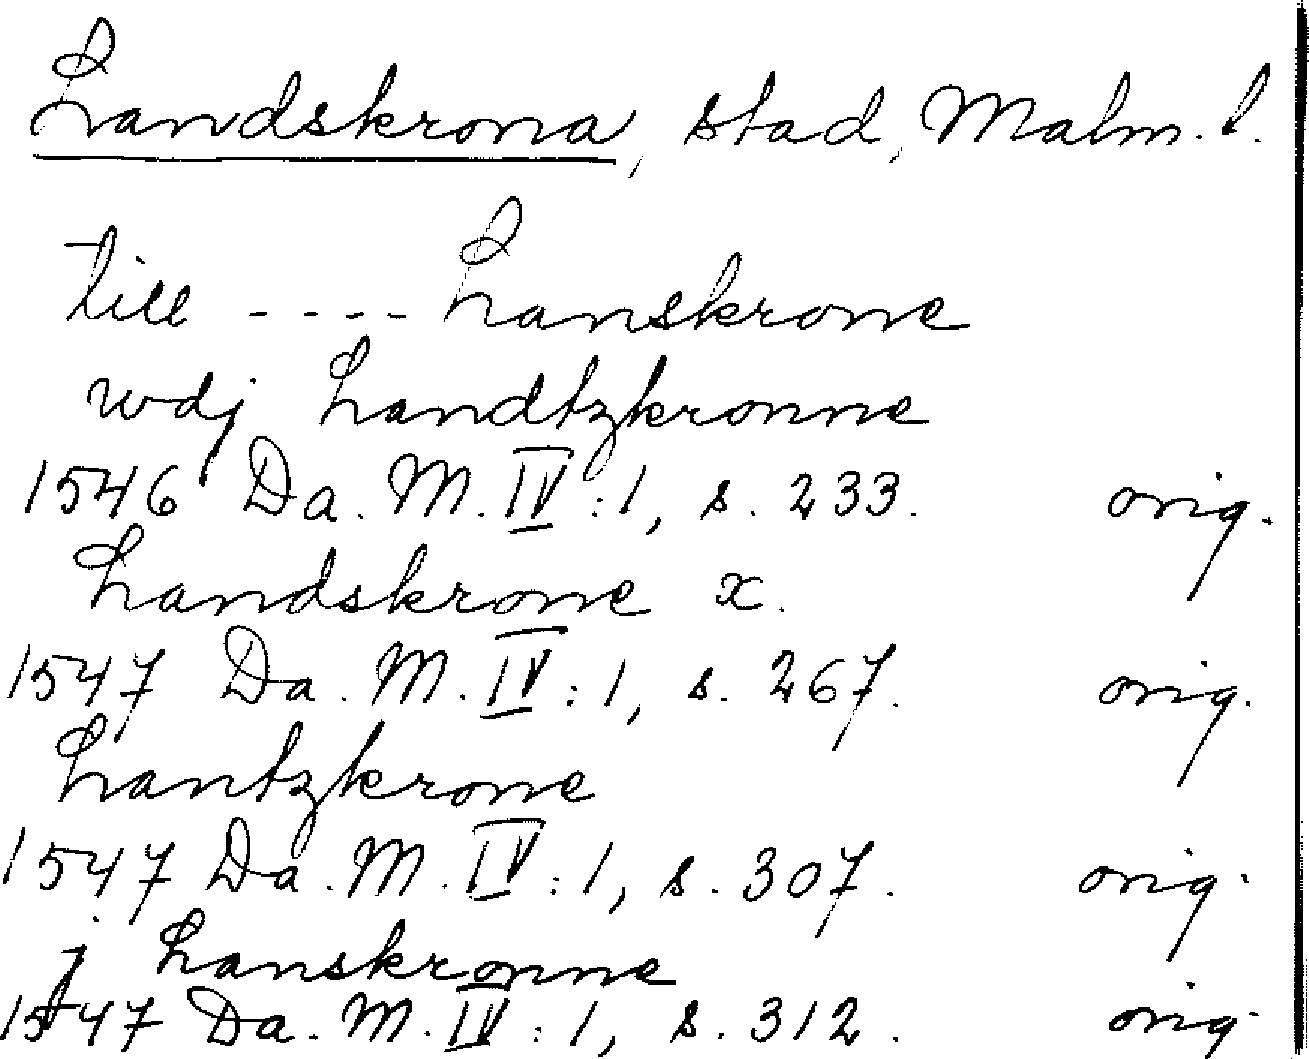 Landskrona, stad, Malm. l.
till ---- Lanskrone
wdj Landtzkronne
1546 Da. M. IV:1, s. 233. orig.
Landskrone x.
1547 Da. M. IV:1, s. 267. orig.
Lantzkrone
1547 Da. M. IV:1, s. 307. orig.
j Lanskronne
1547 Da. M. IV:1, s. 312. orig.